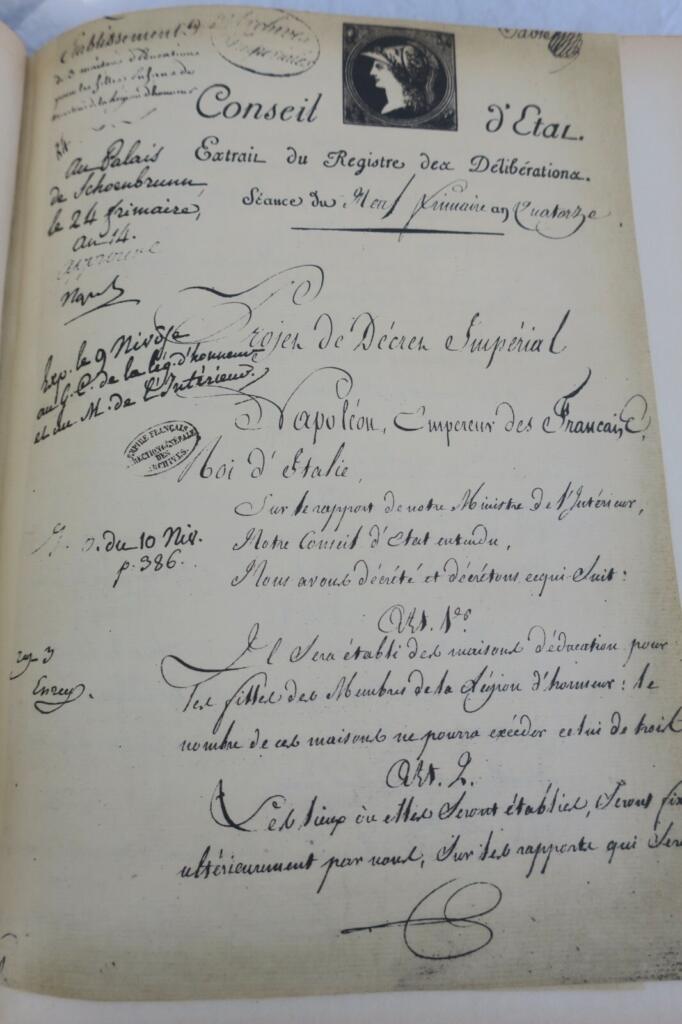 Etablissement de
de 3 maisons d'éducation
pour les filles
de la légion d'honneur
Archives
Impériales
Conseil d'Etat.
Extrait du Registre des Délibérations.
Séance du Neuf frimaire an Quatorze
au Palais
de Schoenbrunn
le 24 frimaire,
an 14.
approuvé
Nap
Projet de Décret Impérial
Exp. le 9 Nivôse
au G. C. de la lég. d'honneur
et au M. de l'Intérieur.
Napoléon, Empereur des Français,
Roi d'Italie,
EMPIRE FRANÇAIS
DIRECTION GÉNÉRALE
DES
ARCHIVES.
Sur le rapport de notre Ministre de l'Intérieur,
Notre Conseil d'Etat entendu,
Nous avons décrété et décrétons ce qui Suit:
du 10 Niv.
p. 386.
Art. 1er.
Il Sera établi des maisons d'éducation pour
les filles des Membres de la Légion d'honneur: le
nombre de ces maisons ne pourra excéder celui de trois
3
Art. 2.
Les lieux où elles Seront établies, Seront fix
ultérieurement par nous, Sur les rapports qui Ser